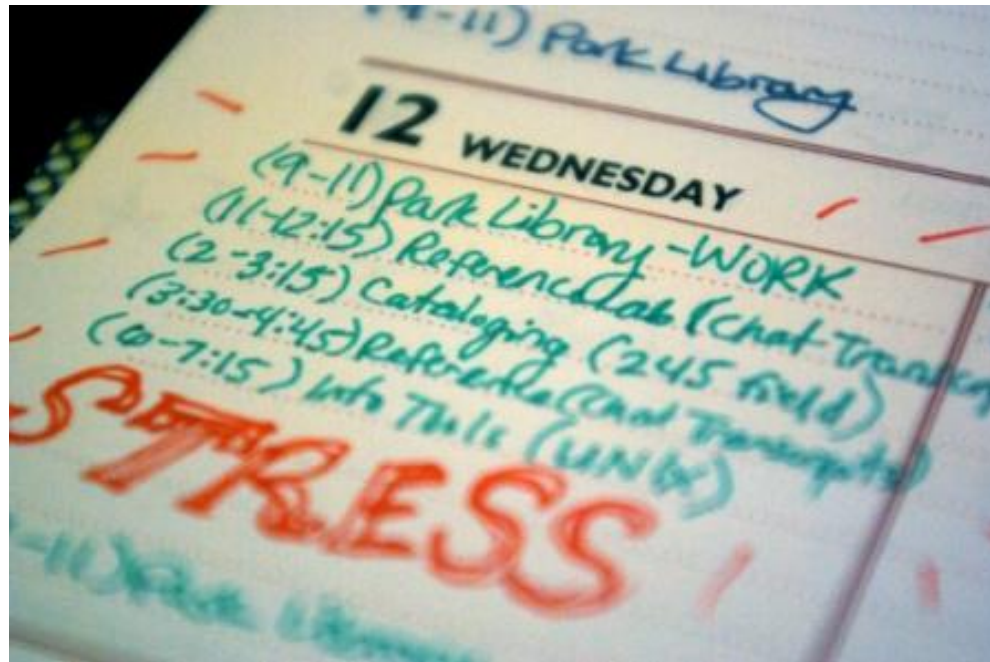 (9-11) Park Library
12 WEDNESDAY
(9-11) Park Library - WORK
(11-12:15) Reference Lab (Chat Transcrip
(2-3:15) Cataloging (245 field)
(3:30-4:45) Reference (Chat Transcripts)
(6-7:15) Info Tools (UNIX)
STRESS
-11) Park Library